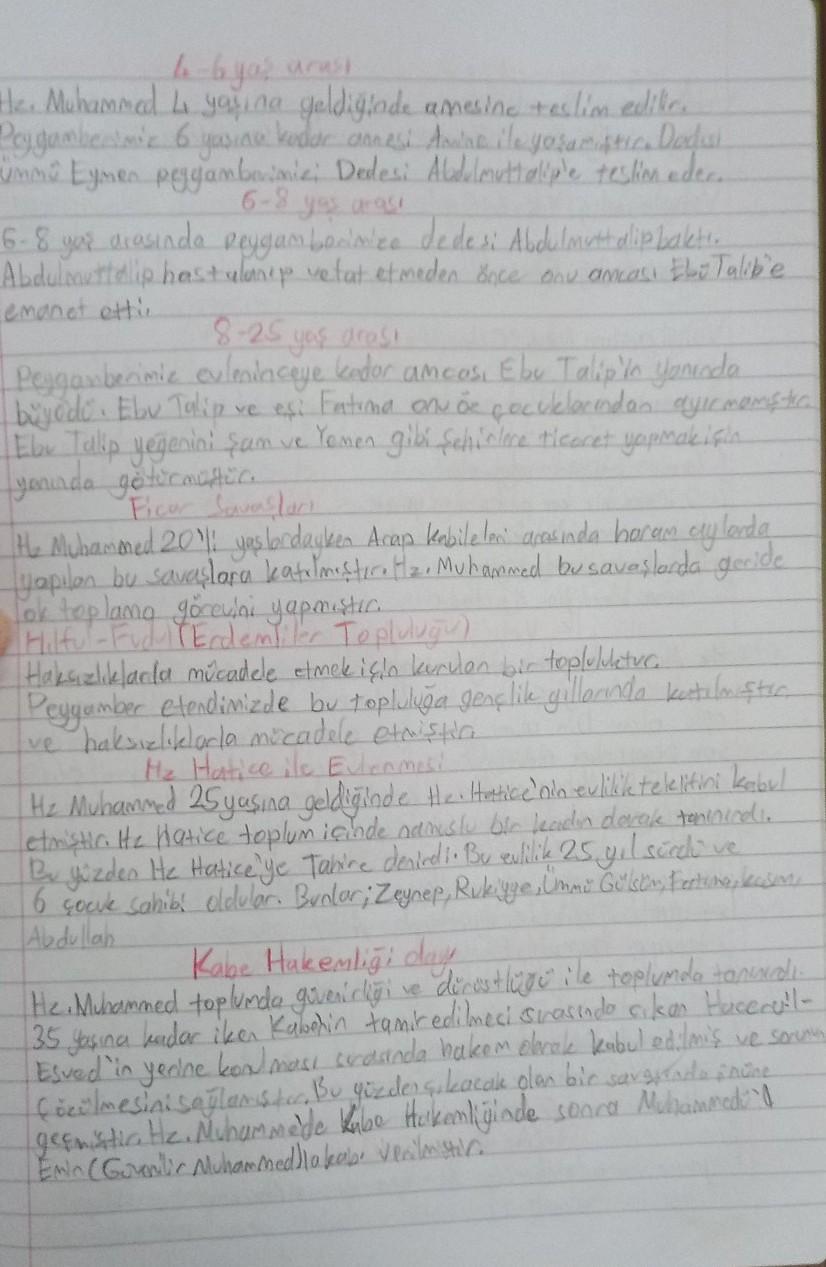 4-6 yaş arası
Hz. Muhammed 4 yaşına geldiğinde annesine teslim edilir.
Peygamberimiz 6 yaşına kadar annesi Amine ile yaşamıştır. Dadısı
Ümmü Eymen peygamberimizi Dedesi Abdulmuttalip'e teslim eder.
6-8 yaş arası
6-8 yaş arasında peygamberimize dedesi Abdulmuttalip baktı.
Abdulmuttalip hastalanıp vefat etmeden önce onu amcası Ebu Talib'e
emanet etti.
8-25 yaş arası
Peygamberimiz evleninceye kadar amcası Ebu Talip'in yanında
büyüdü. Ebu Talip ve eşi Fatıma onu öz çocuklarından ayırmamıştır.
Ebu Talip yeğenini Şam ve Yemen gibi şehirlere ticaret yapmak için
yanında götürmüştür.
Ficar Savaşları
Hz Muhammed 20'li yaşlardayken Arap kabileleri arasında haram aylarda
yapılan bu savaşlara katılmıştır. Hz. Muhammed bu savaşlarda geride
ok toplama görevini yapmıştır.
Hilfu'l-Fudul (Erdemliler Topluluğu)
Haksızlıklarla mücadele etmek için kurulan bir topluluktur.
Peygamber efendimizde bu topluluğa gençlik yıllarında katılmıştır
ve haksızlıklarla mücadele etmiştir.
Hz Hatice ile Evlenmesi
Hz Muhammed 25 yaşına geldiğinde Hz. Hatice'nin evlilik teklifini kabul
etmiştir. Hz Hatice toplum içinde namuslu bir kadın olarak tanınırdı.
Bu yüzden Hz Hatice'ye Tahire denirdi. Bu evlilik 25 yıl sürdü ve
6 çocuk sahibi oldular. Bunlar; Zeynep, Rukiyye, Ümmü Gülsüm, Fatıma, Kasım,
Abdullah
Kabe Hakemliği olayı
Hz. Muhammed toplumda güvenirliği ve dürüstlüğü ile toplumda tanınırdı.
35 yaşına kadar iken Kabenin tamir edilmeci sırasında çıkan Hacerü'l-
Esved'in yerine konulması sırasında hakem olarak kabul edilmiş ve sorunun
çözülmesini sağlamıştır. Bu yüzden çıkacak olan bir savaşında önüne
geçmiştir. Hz. Muhammed'de Kabe Hakemliğinde sonra Muhammedü'l
Emin (Güvenilir Muhammed) lakabı verilmiştir.